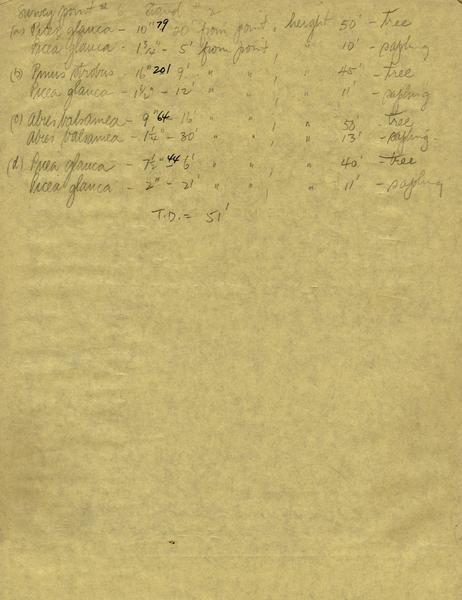 Survey point # 6 Stand # 2
(a) Picea glauca - 10" 79 20' from point, height 50' - tree
Picea glauca - 1 3/4" - 5' from point, " 10' - sapling
(b) Pinus strobus - 16" 201 9' " " , " 45' - tree
Picea glauca - 1 1/2" - 12' " " , " 11' - sapling
(c) Abies balsamea - 9" 64 16' " " , " 50' - tree
Abies balsamea - 1 1/2" - 30' " " , " 13' - sapling
(d) Picea glauca - 7 1/2" 44 6' " " , " 40' - tree
Picea glauca - 2" - 21' " " , " 11' - sapling
T.D. = 51'